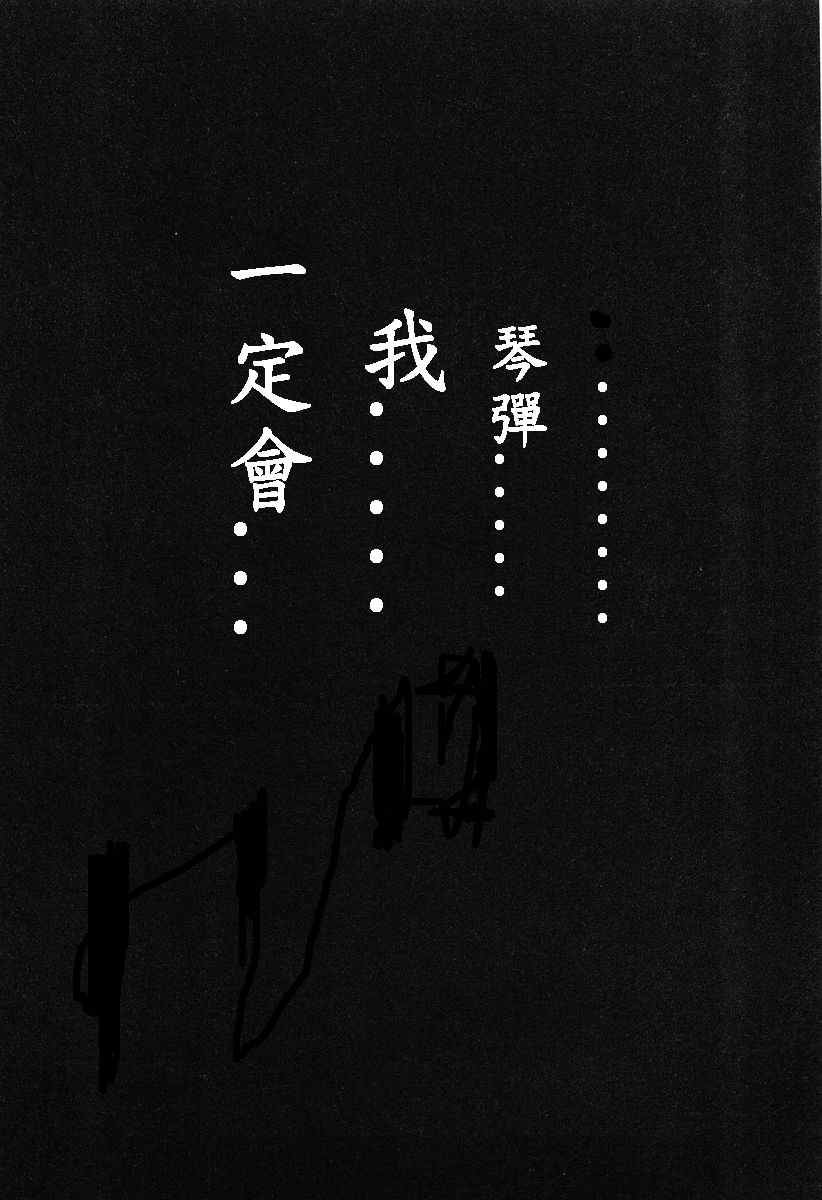 ‧‧‧‧‧‧‧‧
琴彈‧‧‧‧‧
我‧‧‧‧‧
一定會‧‧‧